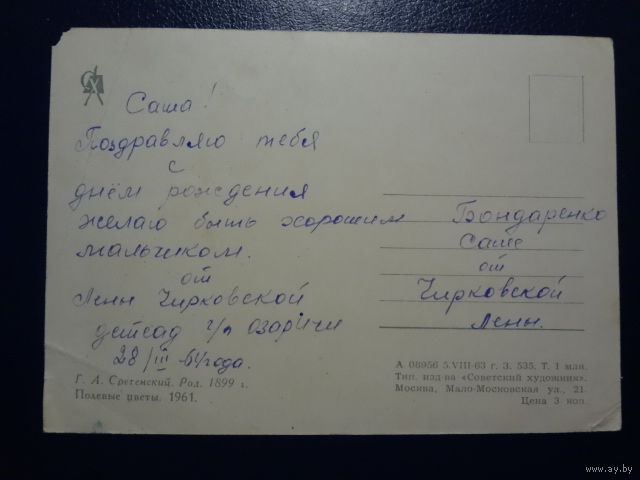 Саша!
Поздравляю тебя
с
днём рождения
желаю быть хорошим
мальчиком.
от
Лены Чирковской
детсад г/п Озаричи
28/III-64 года.
Г. А. Сретенский. Род. 1899 г.
Полевые цветы. 1961.
Бондаренко
Саше
от
Чирковской
Лены.
А 08956 5.VIII-63 г. З. 535. Т. 1 млн.
Тип. изд-ва «Советский художник».
Москва, Мало-Московская ул., 21.
Цена 3 коп.
www.ay.by